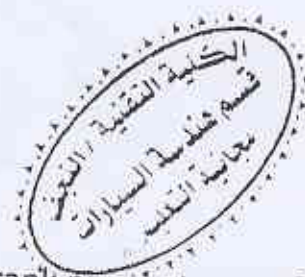 الكلية التقنية / النجف
قسم هندسة السيارات
مجانية التعليم